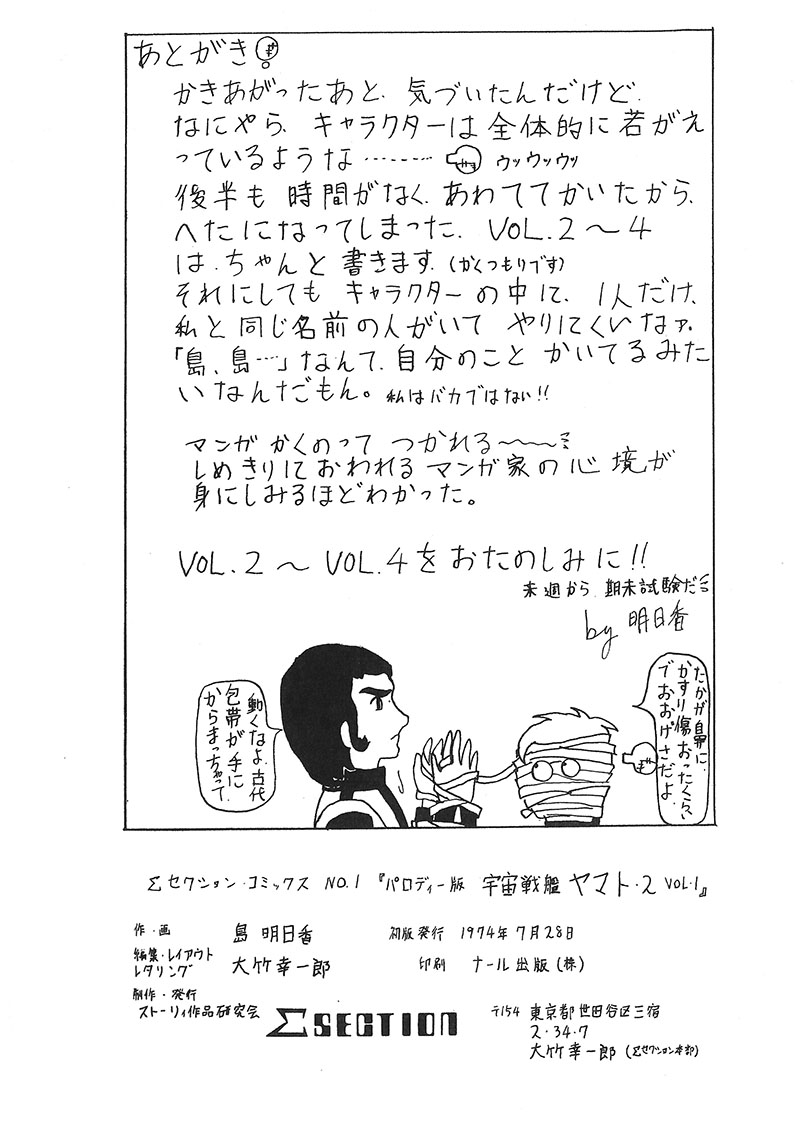 あとがき
かきあがったあと、気づいたんだけど、
なにやら、キャラクターは全体的に若がえ
っているような……… ウッウッウッ
後半も時間がなく、あわててかいたから、
へたになってしまった。VOL.2〜4
は、ちゃんと書きます。(かくつもりです)
それにしても キャラクターの中に、1人だけ、
私と同じ名前の人がいて やりにくいなァ。
「島、島…」なんて、自分のこと かいてるみた
いなんだもん。私はバカブはない!!
マンガ かくのって つかれる〜〜
しめきりにおわれるマンガ家の心境が
身にしみるほどわかった。
VOL.2〜VOL.4をおたのしみに!!
来週から 期末試験だ
by 明日香
動くなよ、古代
包帯が手に
からまっちゃって
たかが鼻に、
かすり傷おったくらい
でおおげさだよ
Σセクション・コミックス NO.1 『パロディー版 宇宙戦艦ヤマト・2 VOL.1』
作・画 島 明日香 初版発行 1974年7月28日
編集・レイアウト
レタリング 大竹幸一郎 印刷 ナール出版(株)
制作・発行
ストーリィ作品研究会 ΣSECTION 〒154 東京都世田谷区三宿
2・34・7
大竹幸一郎(Σセクション本部)